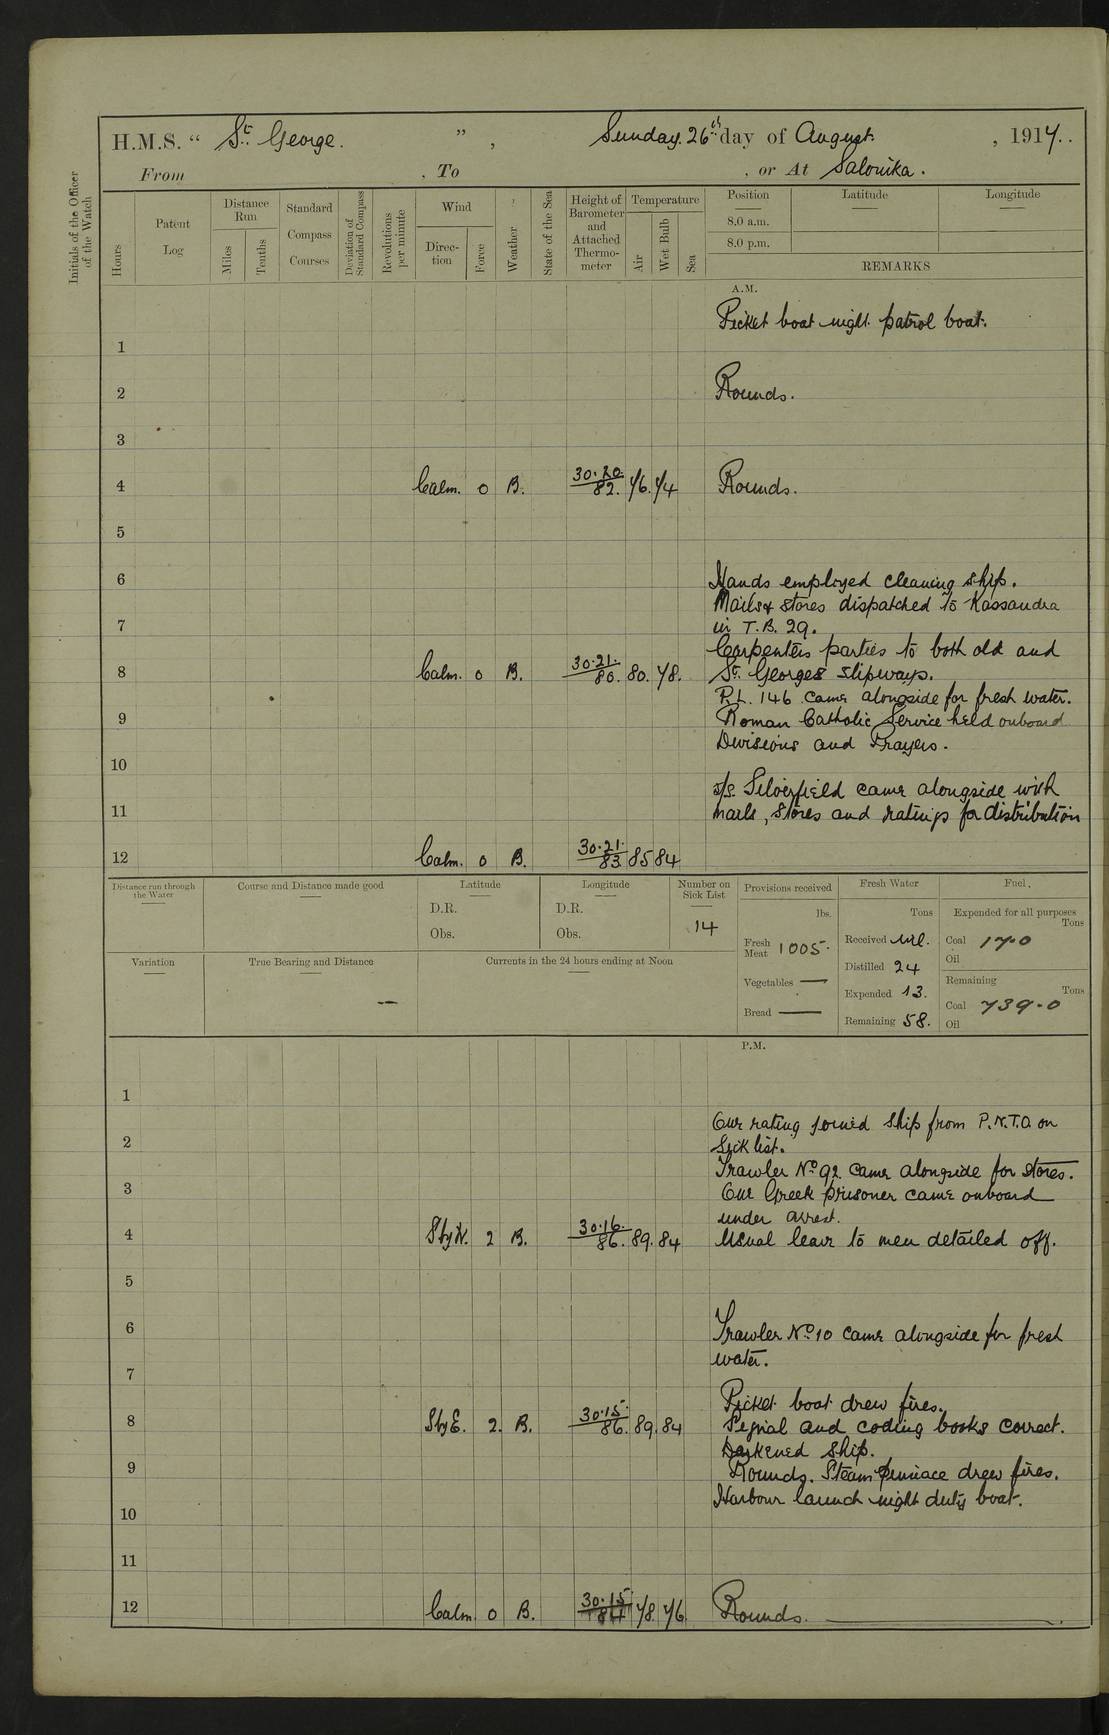 H.M.S. " St. George. ", Sunday. 26th day of August. , 1917.
From , To , or At Salonika.
Initials of the Officer of the Watch
Hours
Patent Log
Distance Run
Miles
Tenths
Standard Compass Courses
Deviation of Standard Compass
Revolutions per minute
Wind
Direction
Force
Weather
State of the Sea
Height of Barometer and Attached Thermometer
Temperature
Air
Wet Bulb
Sea
Position
8.0 a.m.
8.0 p.m.
Latitude
Longitude
REMARKS
A.M.
Picket boat night patrol boat.
1
2 Rounds.
3
4 Calm. 0 B. 30.20. 82. 76. 74 Rounds.
5
6 Hands employed cleaning ship.
Mails & stores dispatched to Kassandra
7 in T.B. 29.
Carpenters parties to both old and
8 Calm. 0 B. 30.21. 80. 80. 78. St. Georges slipways.
P.L. 146 came alongside for fresh water.
9 Roman Catholic Service held onboard
Divisions and Prayers.
10
s/s. Silverfield came alongside with
11 mails, stores and ratings for distribution
12 Calm. 0 B. 30.21. 83. 85 84
Distance run through the Water
Course and Distance made good
Latitude
D.R.
Obs.
Longitude
D.R.
Obs.
Number on Sick List
14
Provisions received
lbs.
Fresh Meat 1005.
Vegetables —
Bread —
Fresh Water
Tons
Received Nil.
Distilled 24
Expended 13.
Remaining 58.
Fuel.
Expended for all purposes
Tons
Coal 17.0
Oil
Remaining
Tons
Coal 739.0
Oil
Variation
True Bearing and Distance
—
Currents in the 24 hours ending at Noon
P.M.
1
One rating joined ship from P.N.T.O. on
2 Sick list.
Trawler No. 92 came alongside for stores.
3 One Greek prisoner came onboard
under arrest.
4 SbyW. 2 B. 30.16. 86. 89. 84 Usual leave to men detailed off.
5
6 Trawler No. 10 came alongside for fresh
water.
7
Picket boat drew fires.
8 SbyE. 2. B. 30.15. 86. 89. 84 Signal and coding books correct.
Darkened ship.
9 Rounds. Steam pinnace drew fires.
Harbour launch night duty boat.
10
11
12 Calm. 0 B. 30.15 84 78. 76. Rounds.